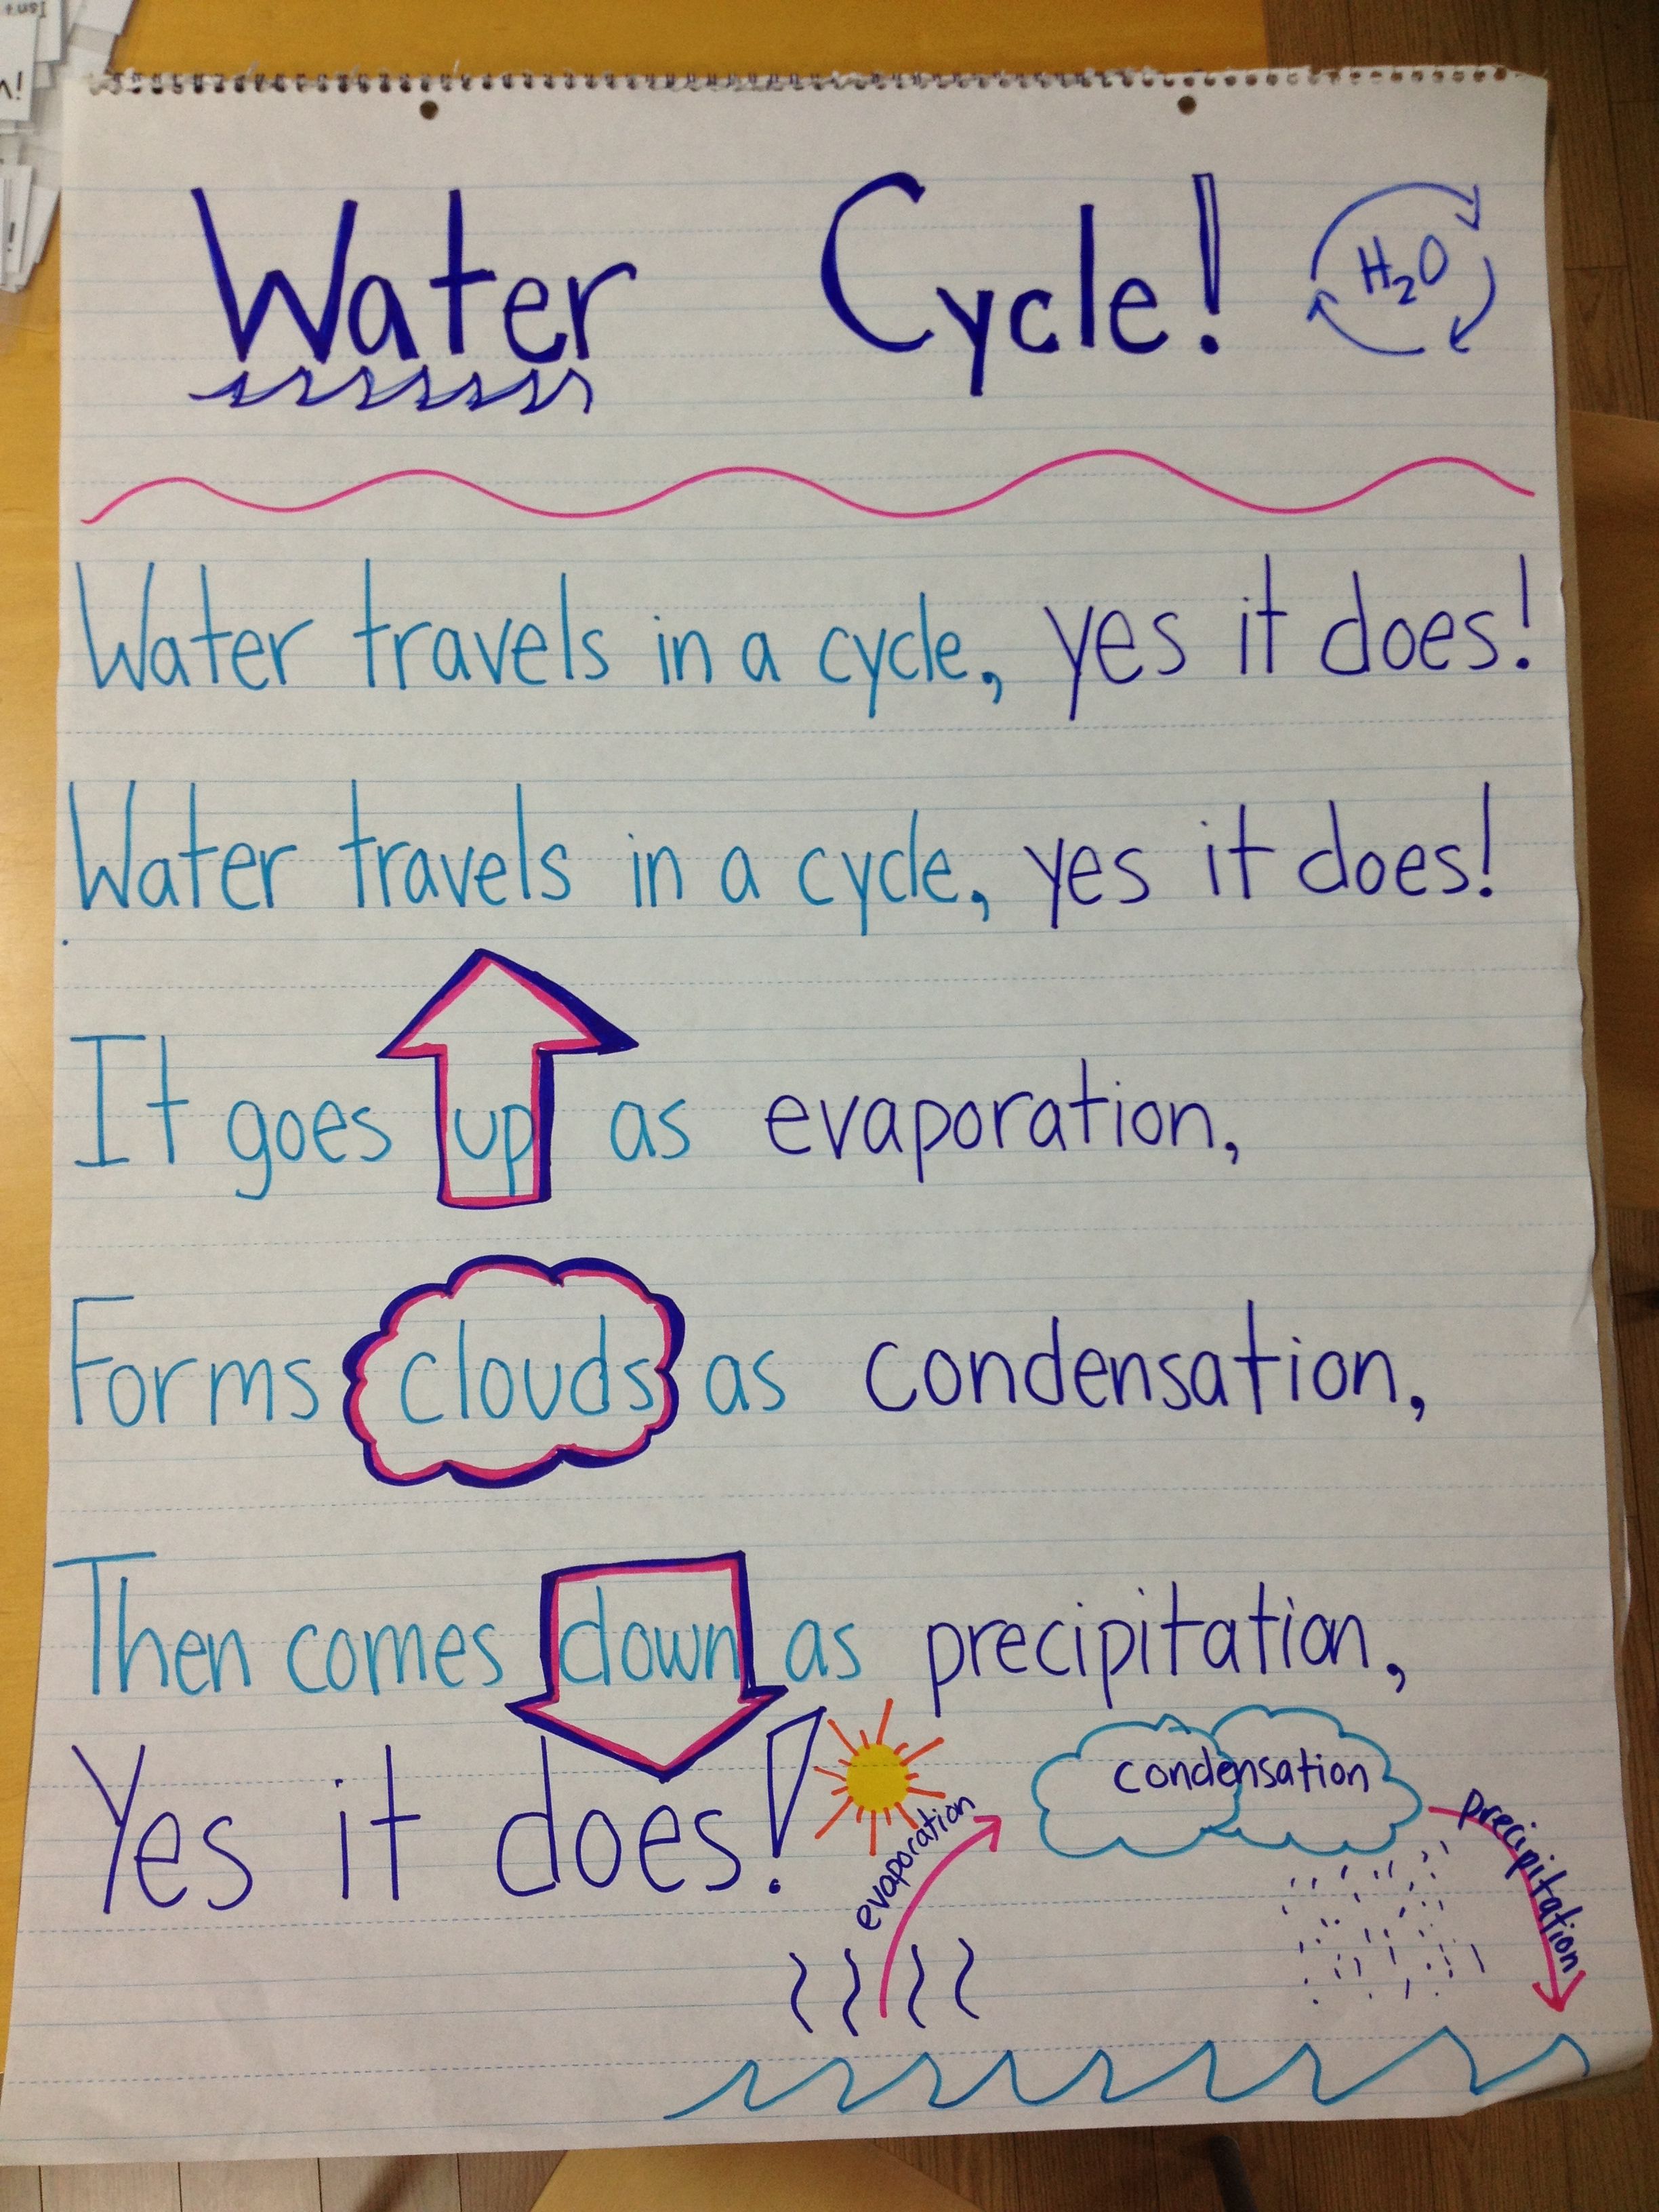 Water Cycle! H₂O
Water travels in a cycle, yes it does!
Water travels in a cycle, yes it does!
It goes up as evaporation,
Forms clouds as condensation,
Then comes down as precipitation,
Yes it does!
evaporation
condensation
precipitation
Isn't